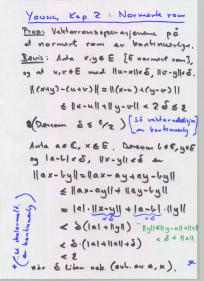 Young, Kap 2 : Normerte rom
Prop: Vektorromsoperasjonene på
et normert rom er kontinuerlige.
Bevis: Anta x,y ∈ E [E normert rom],
og at u,v ∈ E med ||u-x|| < δ, ||v-y|| < δ.
||(x+y)-(u+v)|| = ||(x-u)+(y-v)||
≤ ||x-u|| + ||y-v|| < 2δ ≤ ε
(Dersom δ ≤ ε/2) [så vektoraddisjon er kontinuerlig
Anta a ∈ ℂ, x ∈ E. Dersom b ∈ ℂ, y ∈ E
og |a-b| < δ, ||x-y|| < δ er
||ax-by|| = ||ax-ay+ay-by||
≤ ||ax-ay|| + ||ay-by||
= |a|·||x-y|| + |a-b|·||y||
< δ(|a|+||y||) ||y|| ≤ ||y-x||+||x||
≤ δ·(|a|+||x||+δ) < δ+||x||
< ε
når δ liten nok (avh. av a, x).
så skalarmult. er kontinuerlig